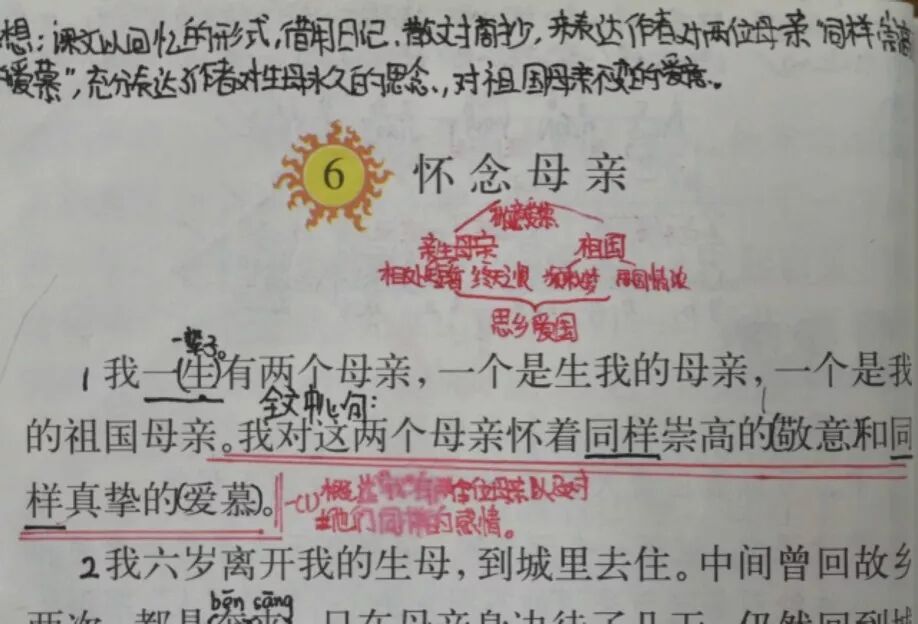 想：课文以回忆的形式，借用日记、散文对摘抄，来表达作者对两位母亲“同样崇高
爱慕”，充分表达了作者对生母永久的思念、，对祖国母亲不变的爱意。
6 怀念母亲
亲生母亲 祖国
终天之恨
思乡爱国
一辈子。
1我一(生)有两个母亲，一个是生我的母亲，一个是我
全文中心句：
的祖国母亲。我对这两个母亲怀着同样崇高的(敬意)和同
样真挚的(爱慕)。
(1)概述“我”有两位母亲以及对
她们同样的感情。
2我六岁离开我的生母，到城里去住。中间曾回故乡
bēn sāng
两次，都是奔丧，只在母亲身边待了几天，仍然回到城